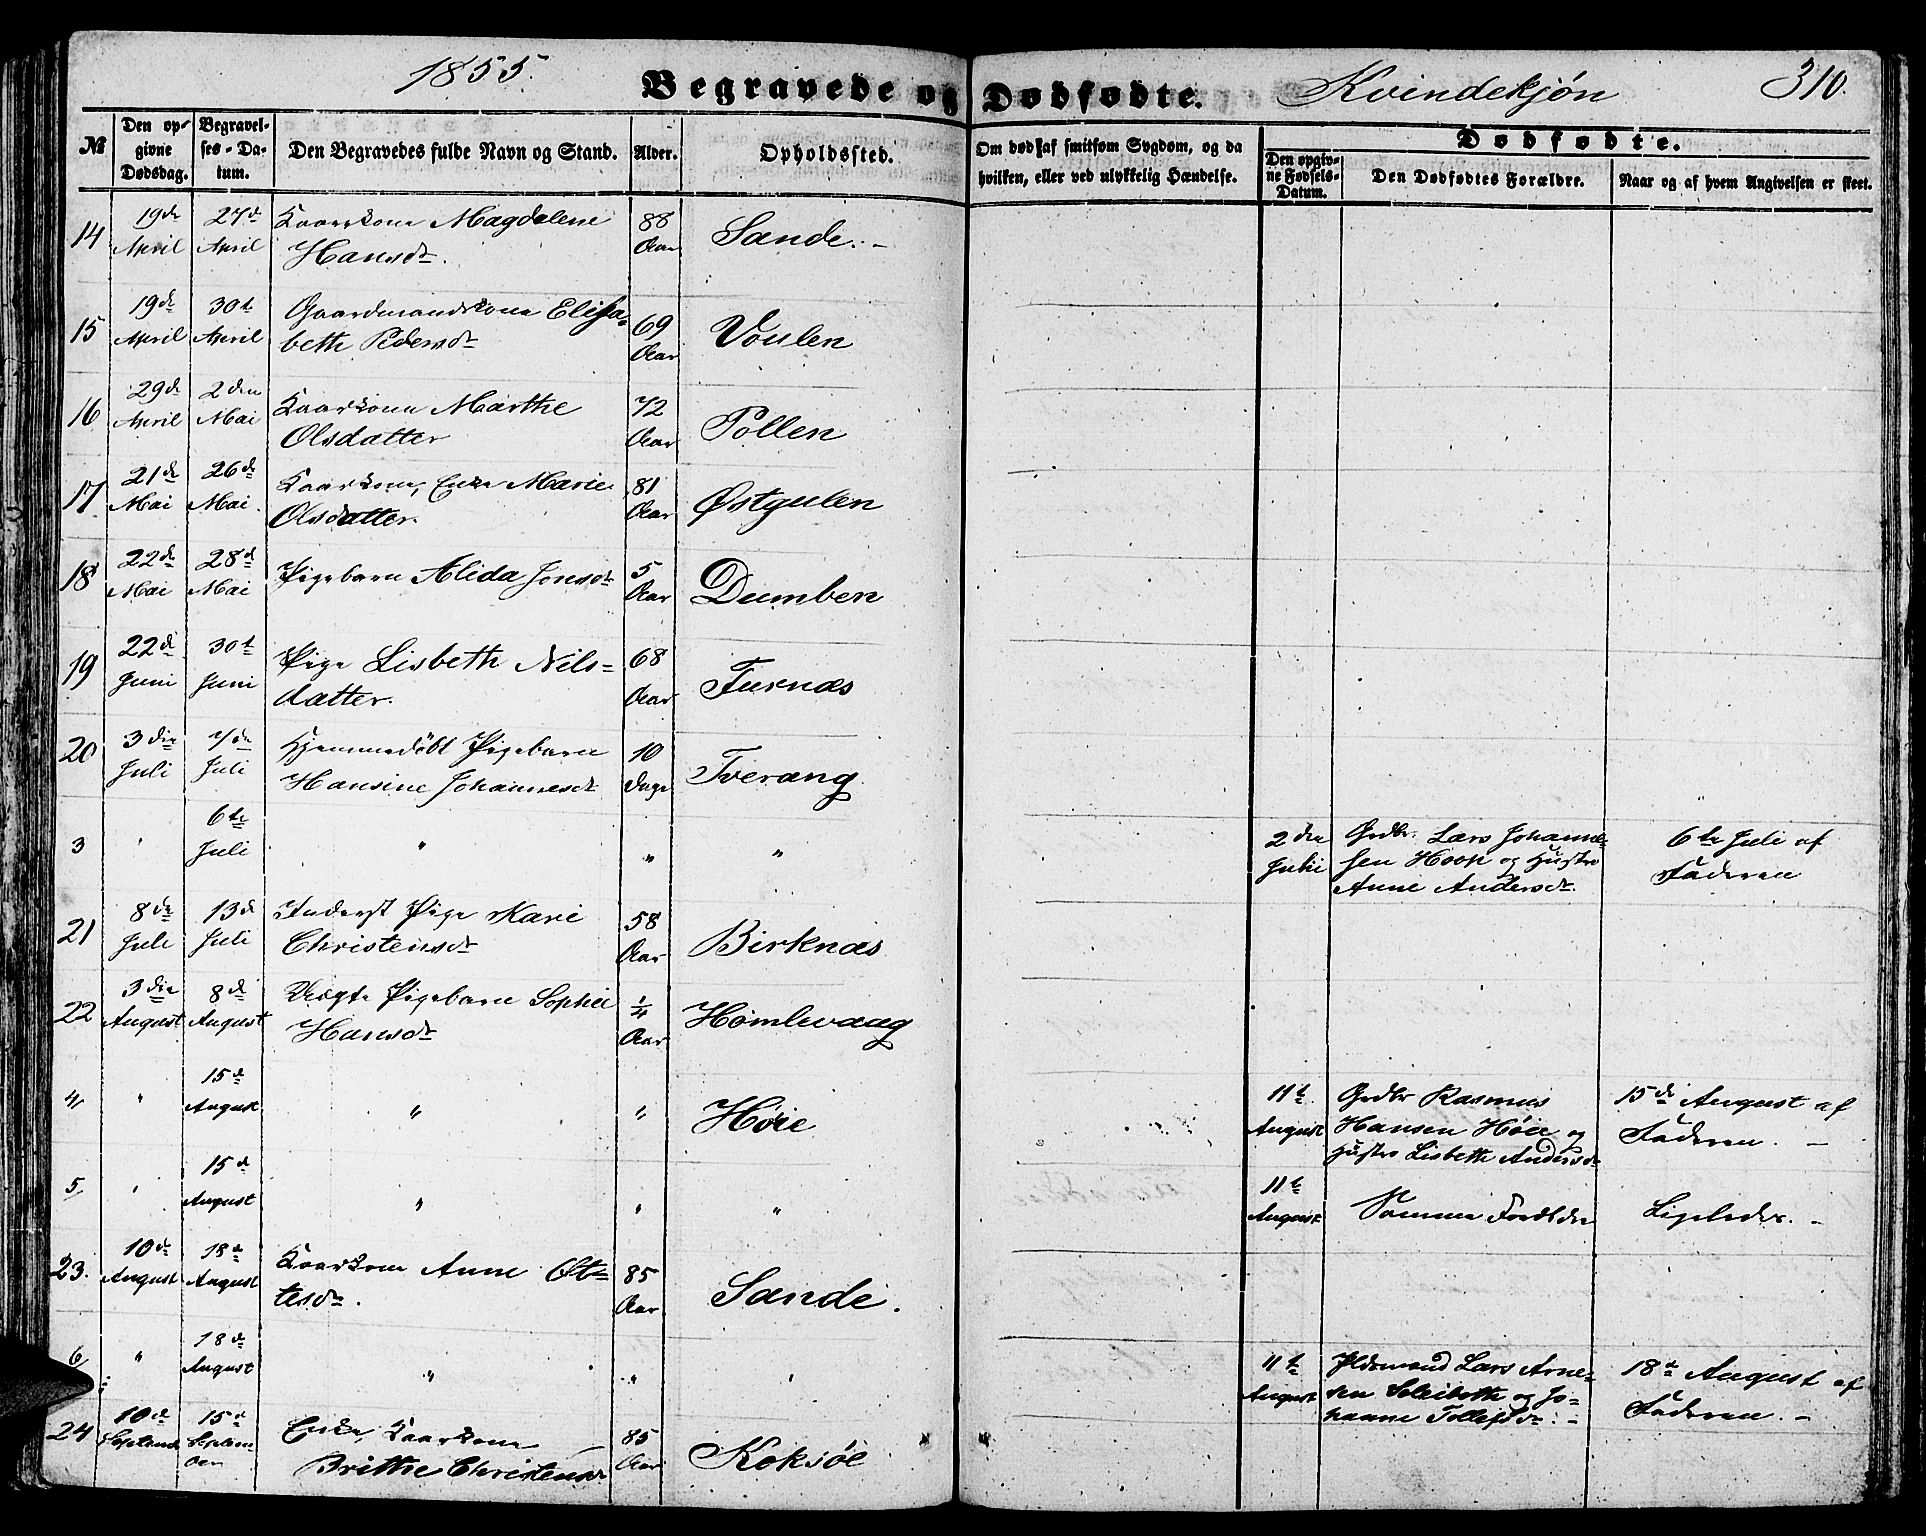 1855.
Begravede og Dødfødte.
Kvindekjøn
310.
№
Den opgivne Dødsdag.
Begravelses-Datum.
Den Begravedes fulde Navn og Stand.
Alder.
Opholdssted.
Om død af smitsom Sygdom, og da hvilken, eller ved ulykkelig Hændelse.
Dødfødte.
Den opgivne Fødsels-Datum.
Den Dødfødtes Forældre.
Naar og af hvem Angivelsen er skeet.
14 19de April 27de April Kaarkone Magdalene Hansdtr. 88 Aar Sande.-
15 19de April 30te April Gaardmandskone Elisabeth Pedersdtr 69 Aar Voulen
16 29de April 2den Mai Kaarkone Marthe Olsdatter 72 Aar Pollen
17 21de Mai 26de Mai. Kaarkone, Enke Marie Olsdatter. 81 Aar Østgulen
18 22de Mai 28de Mai Pigebarn Alida Jonsdtr 5 Aar Dumben
19 22de Juni 30te Juni Pige Lisbeth Nilsdatter. 68 Aar Furnæs
20 3die Juli 7de Juli Hjemmedøbt Pigebarn Hansine Johannesdtr 10 Dage Tverang
3 " 6te Juli " " " 2den Juli Grdbr. Lars Johannessen Hoop og Hustro Anne Andersdtr. 6te Juli af Faderen
21 8de Juli 13de Juli Inderst Pige Kari Christensdtr 58 Aar Birknæs
22 3die August 8de August Uægte Pigebarn Sophie Hansdtr 1/4 Aar Homlevaag
4 " 15de August " " Høie 11te August Grdbr Rasmus Hansen Høie og Hustro Lisbeth Andersdtr 15de August af Faderen. -
5 " 15de August " " " 11te August Samme Forældre Ligeledes. -
23. 10de August 18de August Kaarkone Anne Ottesdtr. 85 Aar Sande.
6 " 18de August " " " 11te August Lars Arnesen og Johanne Tollefsdtr. - 18de August af Faderen. -
24 10de Septembr 15de September Enke, Kaarkone Brithe Christensdtr 85 Aar Koksøe